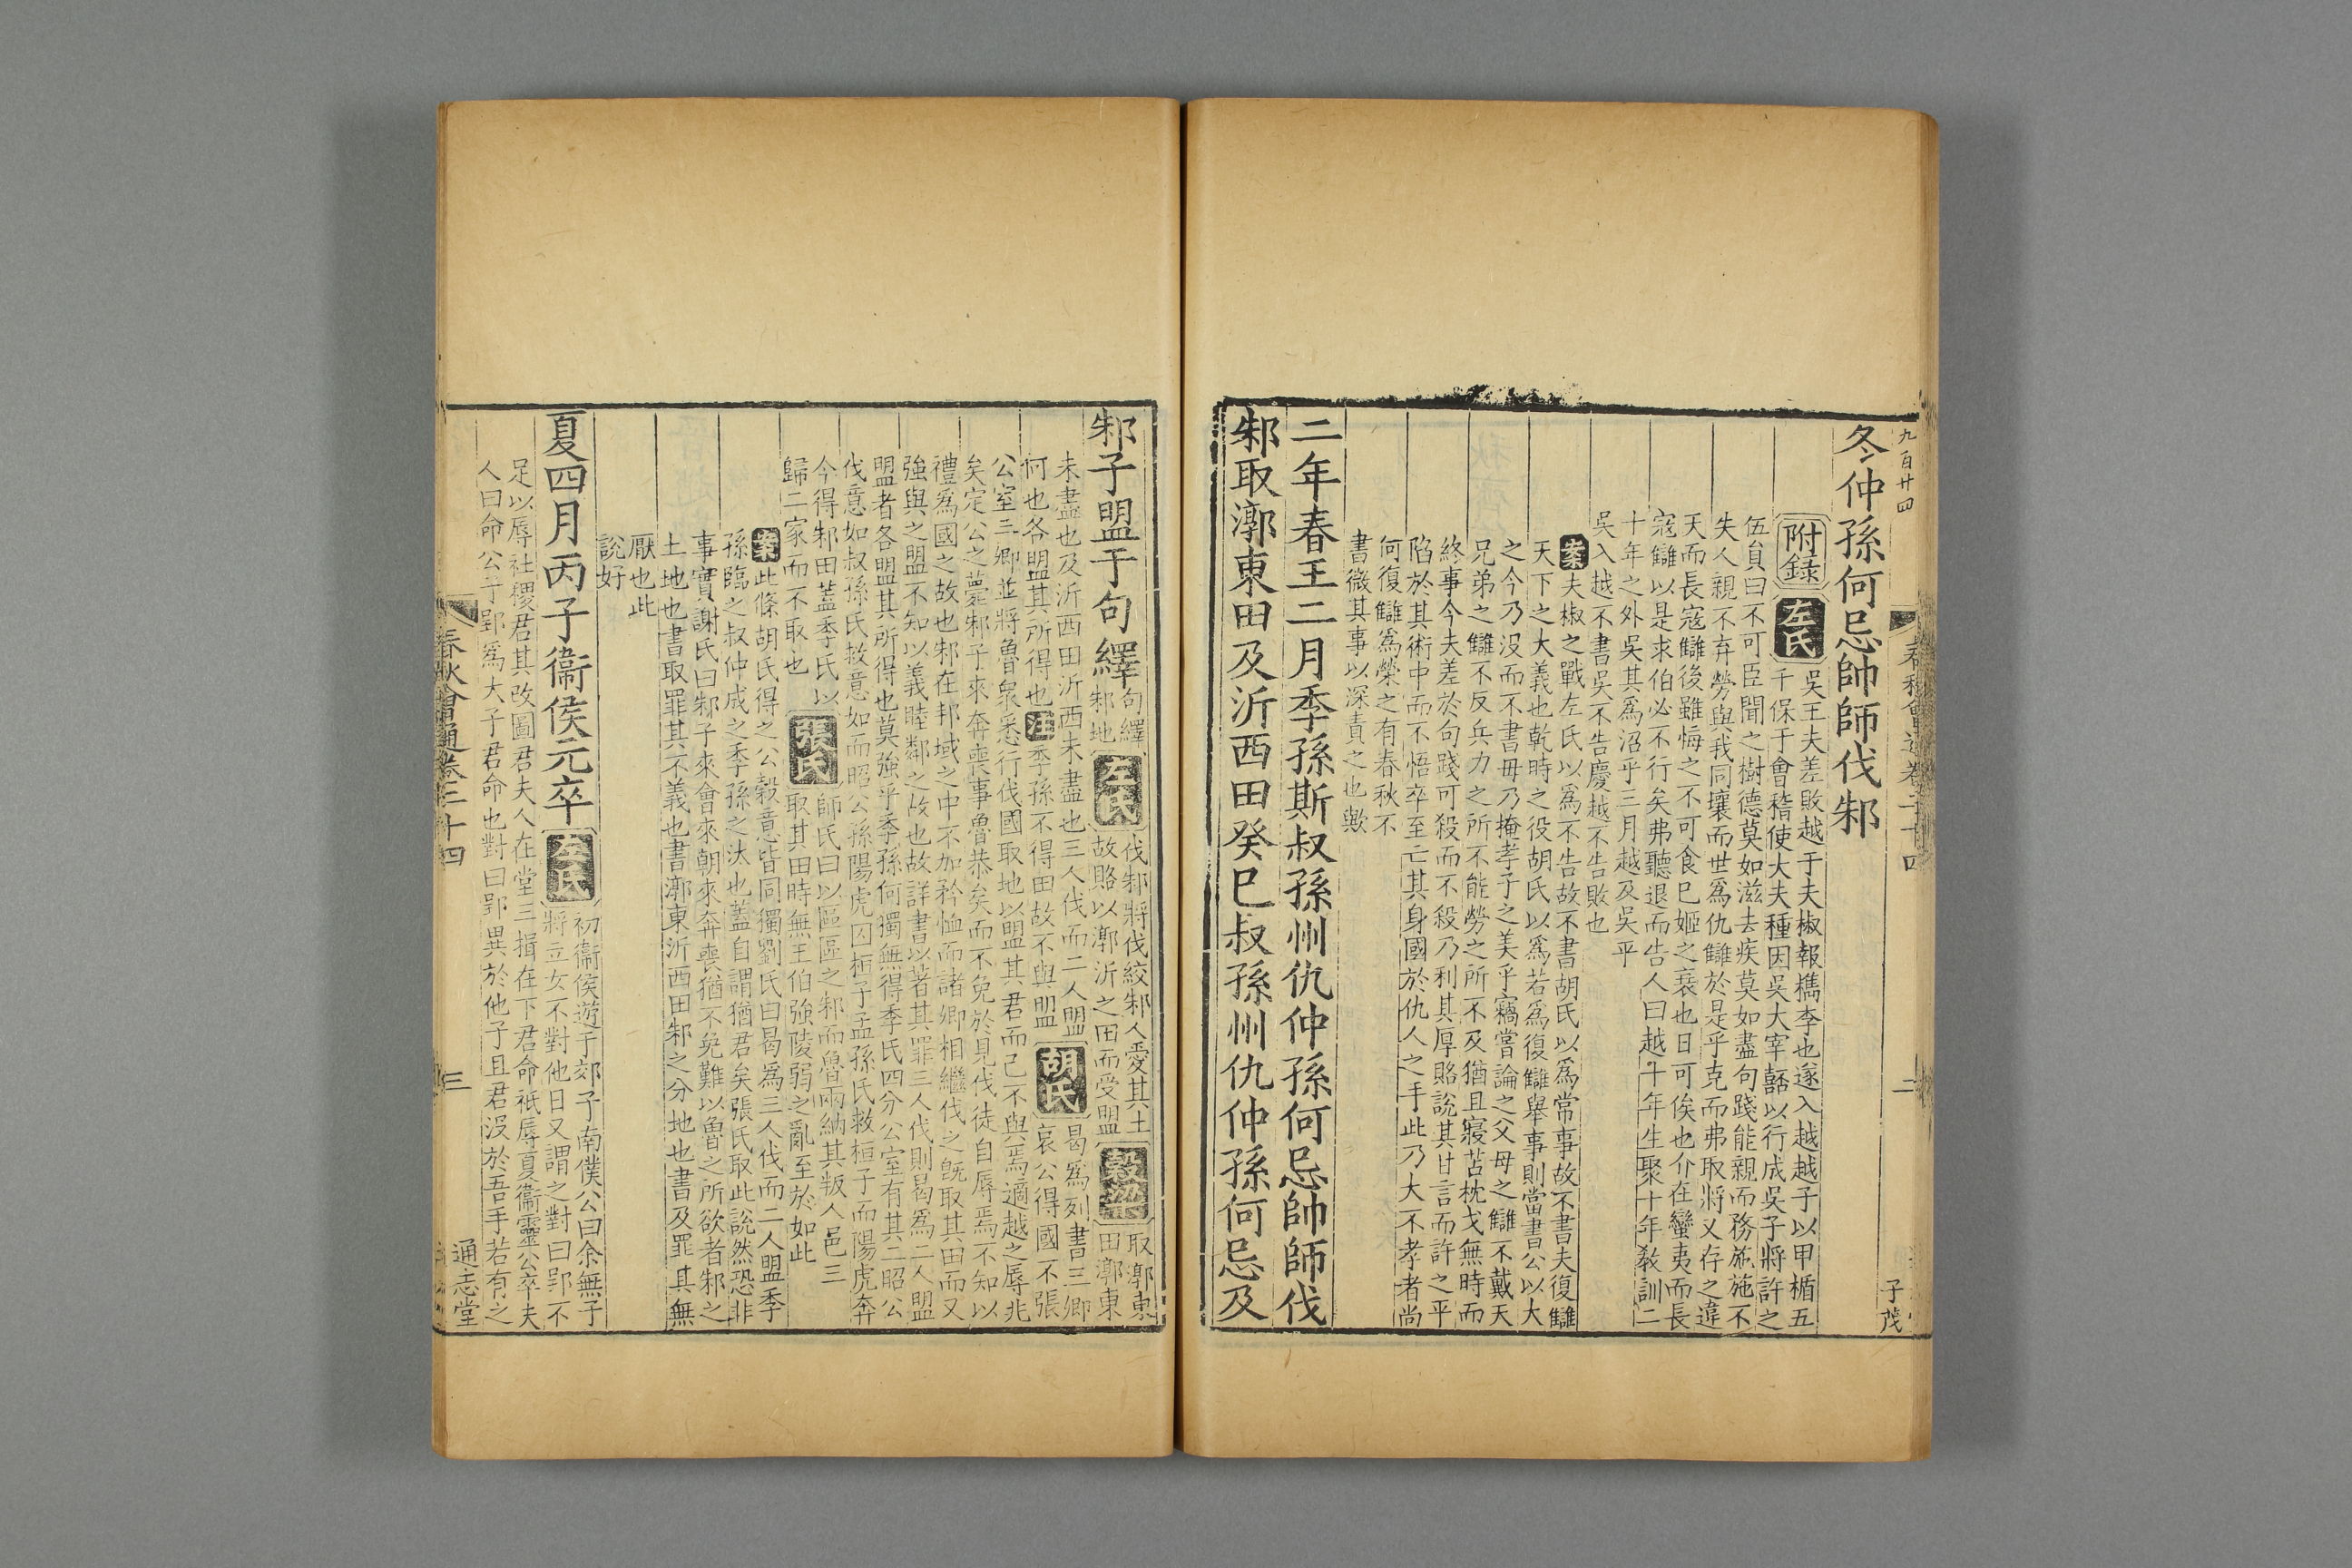 九百廿四
春秋會通卷二十四
二
子茂
冬仲孫何忌帥師伐邾
附錄
左氏
吳王夫差敗越于夫椒報檇李也遂入越越子以甲楯五
千保于會稽使大夫種因吳大宰嚭以行成吳子將許之
伍員曰不可臣聞之樹德莫如滋去疾莫如盡句踐能親而務施施不
失人親不弃勞與我同壤而世爲仇讎於是乎克而弗取將又存之違
天而長寇讎後雖悔之不可食巳姬之衰也日可俟也介在蠻夷而長
寇讎以是求伯必不行矣弗聽退而告人曰越十年生聚十年敎訓二
十年之外吳其爲沼乎三月越及吳平
吳入越不書吳不告慶越不告敗也
案夫椒之戰左氏以爲不告故不書胡氏以爲常事故不書夫復讎
天下之大義也乾時之役胡氏以爲若爲復讎舉事則當書公以大
之今乃没而不書毋乃掩孝子之美乎竊嘗論之父母之讎不戴天
兄弟之讎不反兵力之所不能勞之所不及猶且寢苫枕戈無時而
終事今夫差於句踐可殺而不殺乃利其厚賂說其甘言而許之平
陷於其術中而不悟卒至亡其身國於仇人之手此乃大不孝者尚
何復讎爲榮之有春秋不
書微其事以深責之也歟
二年春王二月季孫斯叔孫州仇仲孫何忌帥師伐
邾取漷東田及沂西田癸巳叔孫州仇仲孫何忌及
邾子盟于句繹
句繹
邾地
左氏
伐邾將伐絞邾人愛其土
故賂以漷沂之田而受盟
穀梁
取漷東
田漷東
未盡也及沂西田沂西未盡也三人伐而二人盟
何也各盟其所得也注季孫不得田故不與盟
胡氏
曷爲列書三卿
哀公得國不張
公室三卿並將魯衆悉行伐國取地以盟其君而己不與焉適越之辱兆
矣定公之薨邾子來奔喪事魯恭矣而不免於見伐徒自辱焉不知以
禮爲國之故也邾在邦域之中不加矜恤而諸卿相繼伐之旣取其田而又
強與之盟不知以義睦鄰之故也故詳書以著其罪三人伐則曷爲二人盟
盟者各盟其所得也莫強乎季孫何獨無得季氏四分公室有其二昭公
伐意如叔孫氏救意如而昭公孫陽虎囚桓子孟孫氏救桓子而陽虎奔
今得邾田蓋季氏以
歸二家而不取也
張氏
師氏曰以區區之邾而魯兩納其叛人邑三
取其田時無王伯強陵弱之亂至於如此
案此條胡氏得之公穀意皆同獨劉氏曰曷爲三人伐而二人盟季
孫臨之叔仲成之季孫之汰也蓋自謂猶君矣張氏取此說然恐非
事實謝氏曰邾子來會來朝來奔喪猶不免難以魯之所欲者邾之
土地也書取罪其不義也書漷東沂西田邾之分地也書及罪其無
厭也此
說好
夏四月丙子衞侯元卒
左氏
初衞侯遊于郊子南僕公曰余無子
將立女不對他日又謂之對曰郢不
足以辱社稷君其改圖君夫人在堂三揖在下君命祇辱夏衞靈公卒夫
人曰命公子郢爲大子君命也對曰郢異於他子且君没於吾手若有之
春秋會通卷二十四
三
通志堂